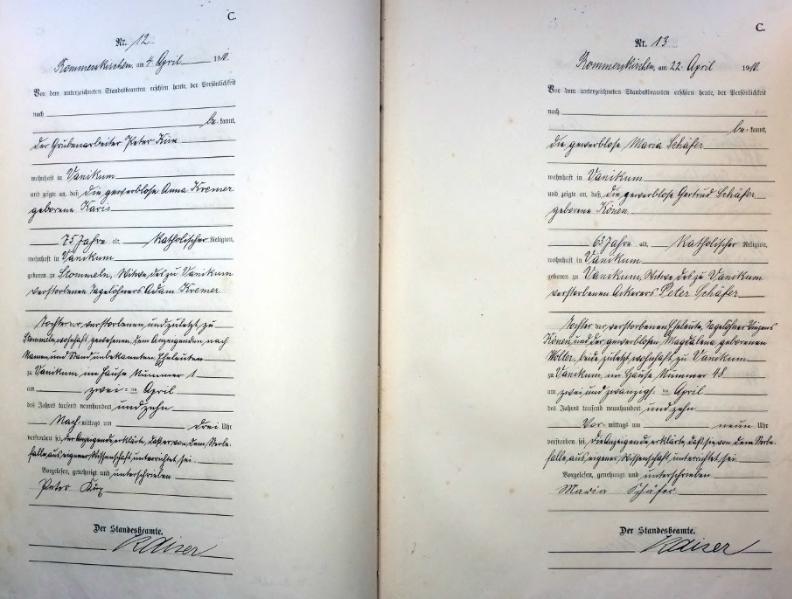 C.
Nr. 12
Rommerskirchen, am 4 April 1910.
Vor dem unterzeichneten Standesbeamten erschien heute, der Persönlichkeit
nach
be-kannt,
der Grubenarbeiter Peter
wohnhaft in Vanikum
und zeigte an, daß die gewerblose Anna Kremer
geborene
75 Jahre alt, Katholischer Religion,
wohnhaft in Vanikum
geboren zu Stommeln, Witwe des zu Vanikum
verstorbenen Tagelöhners Adam Kremer
Tochter der verstorbenen, und zuletzt zu
Stommeln wohnhaft gewesenen, dem Anzeigenden, nach
Namen und Stand unbekannten Eheleuten
zu Vanikum, im Hause Nummer 1
am zwei ten April
des Jahres tausend neunhundert und zehn
Nach-mittags um drei Uhr
verstorben sei, der Anzeigende erklärte, daß er von dem Sterbe-
falle, aus eigener Wissenschaft, unterrichtet sei.
Vorgelesen, genehmigt und unterschrieben
Peter
Der Standesbeamte.
Kaiser
C.
Nr. 13
Rommerskirchen, am 22 April 1910.
Vor dem unterzeichneten Standesbeamten erschien heute, der Persönlichkeit
nach
be-kannt,
die gewerblose Maria Schäfer
wohnhaft in Vanikum
und zeigte an, daß die gewerblose Gertrud Schäfer
geborene Könen
63 Jahre alt, Katholischer Religion,
wohnhaft in Vanikum
geboren zu Vanikum, Witwe des zu Vanikum
verstorbenen Ackerers Peter Schäfer
Tochter der verstorbenen Eheleute, Tagelöhner
Könen und der gewerblosen Magdalena geborenen
beide zuletzt wohnhaft zu Vanikum
zu Vanikum, im Hause Nummer 48
am zwei und zwanzigs ten April
des Jahres tausend neunhundert und zehn
Vor-mittags um neun Uhr
verstorben sei, die Anzeigende erklärte, daß sie von dem Sterbe-
falle, aus eigener Wissenschaft, unterrichtet sei.
Vorgelesen, genehmigt und unterschrieben
Maria Schäfer
Der Standesbeamte.
Kaiser